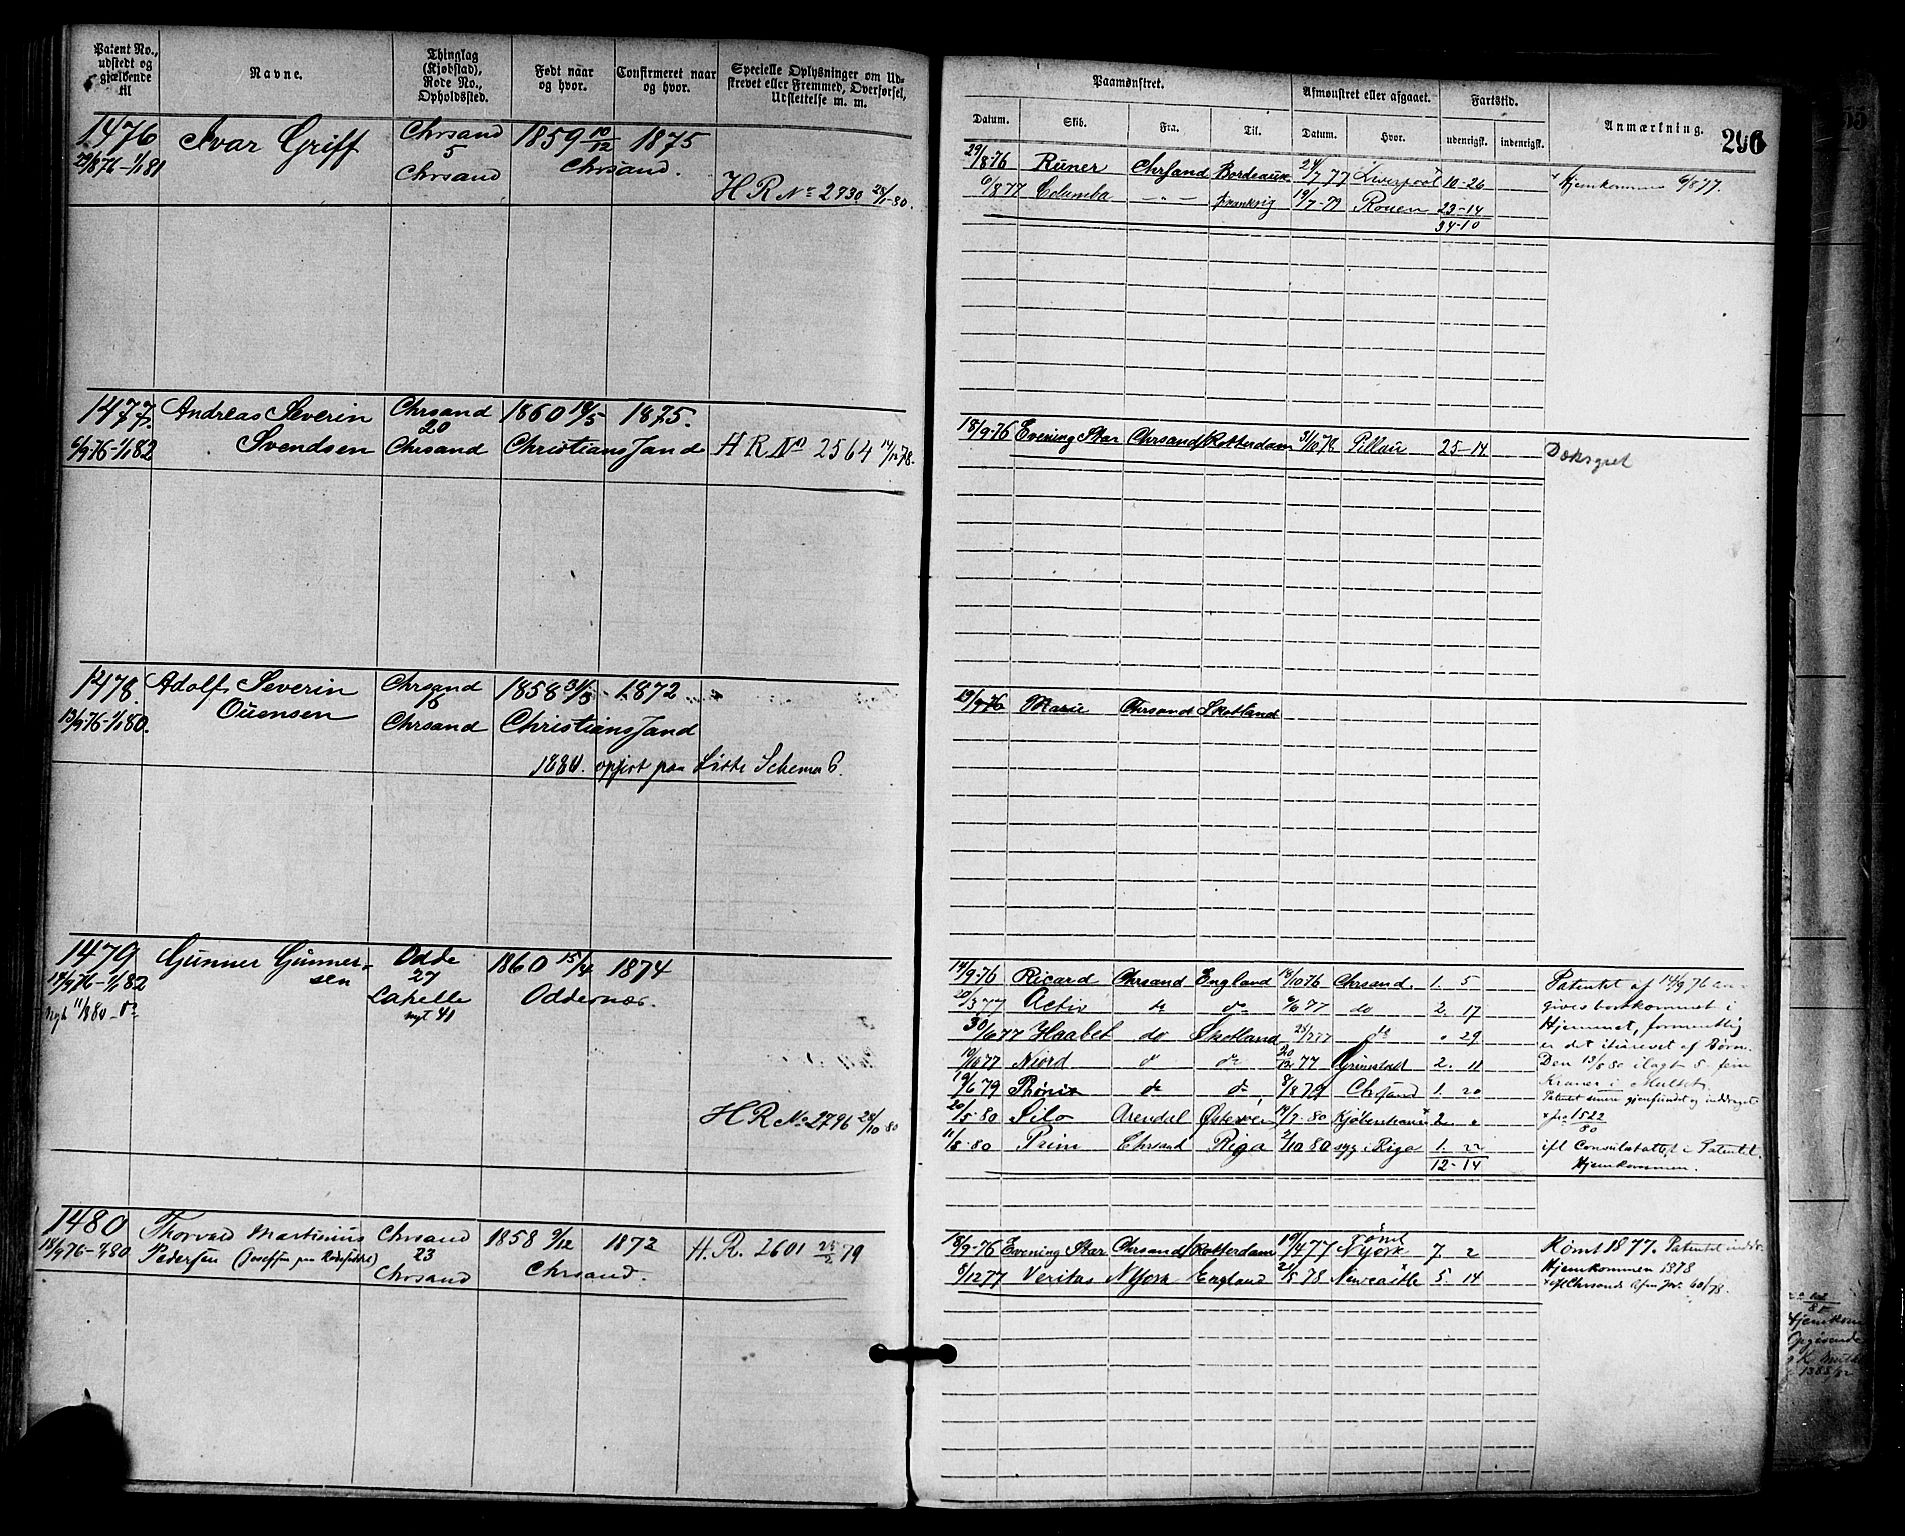 Patent No., udstedt og gjældende til
Navne.
Thinglag (Kjøbstad), Rode No., Opholdssted.
Født naar og hvor.
Confirmeret naar og hvor.
Specielle Oplysninger om Udstrevet eller Fremmed, Overførsel, Udslettelse m. m.
Paamønstret.
Afmønstret eller afgaaet.
Fartstid.
Anmærkning.
Datum. Skib. Fra. Til. Datum. Hvor. udenrigst. indenrigst.
1476 Ivar Griff Chrsand 1859 10/12 1875
29/8 76 - 1/1 81 5 Chrsand.
Chrsand
H R No 2730 28/1-80.
29/8 76 Runer Chrsand Bordeaux 24/7 77 Liverpool 10-26 Hjemkommen 6/8 77.
6/8 77 Columba - " - Frankrig 19/7-79 Rouen 23-14
34-10
1477. Andreas Severin Chrsand 1860 19/5 1875.
20
6/9 76 - 1/1 82 Svendsen Chrsand Christianssand H R No 2564 14/12 78.
18/9 76 Evening Star Chrsand Rotterdam 31/10 78 Pillau 25-14
1478. Adolf Severin Chrsand 1858 31/3 1872
13/9 76 - 1/1 80. Ouensen Chrsand Christianssand
opført paa Liste Schema 6.
19/9 76 Marie Chrsand Skotland
1479 Gunner Gunnersen Odde 1860 15/4 1874
14/9 76 - 1/1 82 27 Oddernæs.
Lahelle
nyt 41
H R No 2796 28/10 80
14/9 76 Ricard Chrsand England 18/10 76 Chrsand. 1. 5
20/3 77 Activ do do 6/6 77 do 2. 17
30/6 77 Haabet do Skotland 28/7 77 do " 29
10/10 77 Niord do do 20/12 77 Grimstad 2. 11
19/6 79 Phønix do do 8/8 79 Chrsand 1. 20
20/5-80 Silo Arendal Østersøen 19/7-80 Kjøbenhavn 2 "
11/8-80 Prim Chrsand Riga 2/10 80 syg i Riga 1. 22
12-14
Patentet af 14/9 76 angives bortkommet i
Hjemmet, formentlig
er det iturevet af Børn.
Den 13/8 80 ilagt 5 fem
Kroner i Mulkt.
Patentet senere gjenfundet og inddraget
x fra 1522/80
ifl Consulatattest i Patentet.
Hjemkommen.
1480 Thorvald Martinius Chrsand 1858 9/12 1872 H. R. 2601 25/2 79
18/9 76 - 1/1 80 Pedersen (Josefsen paa Rodeseddel) 23 Chrsand.
Chrsand
18/9-76 Evening Star Chrsand Rotterdam 19/4 77 rømt NYork 7. 2
8/12 77 Veritas NYork England 21/5 78 Newcastle 5. 14
Rømt 1877. Patentet inddr.
Hjemkommen 1878